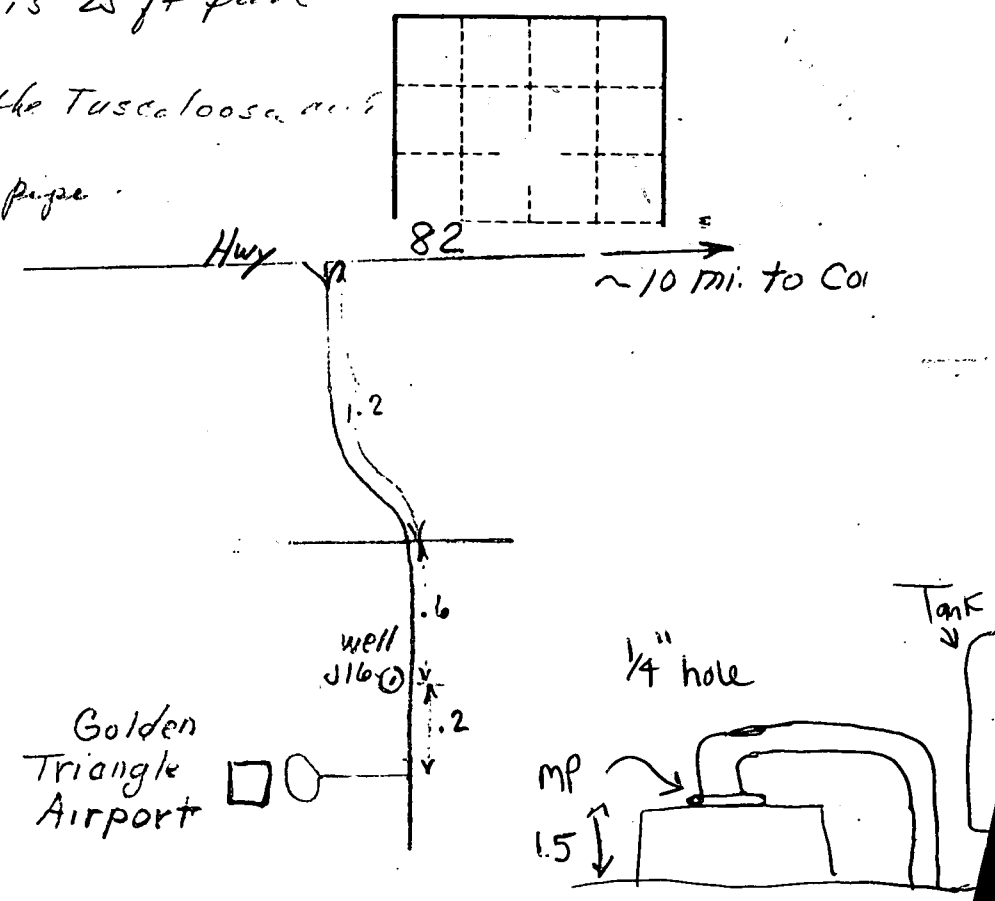 is 25 ft
the Tuscaloosa
pipe.
Hwy 82
E
~10 mi. to Col
1.2
.6
well
J16
.2
Golden
Triangle
Airport
Tank
1/4" hole
MP
1.5